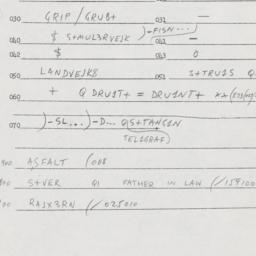 030 GRIP/GRUB+ 032 —
040 $ S+MUL3RVEJK )-FISN...) 042 —
042 $ 043 0
050 LANDVEJK8 053 3+TRU1S Q
060 + Q DRU1T+ = DRU1NT+
070 )-SL...)-D... QS+TANG1N
TEL1GRAF)
ASFALT (008
S+VER Q1 FATHER IN LAW (/159100
RAJX3RN (/025010